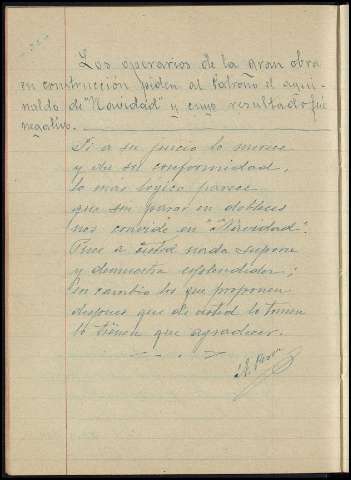 Los operarios de la gran obra
en construcción piden al Patrono el agui-
naldo de "Navidad" y cuyo resultado fué
negativo.
Si a su juicio lo merece
y da su conformidad,
lo más lógico parece
que sin parar en dobleces
nos convide en "Navidad".
Pues a usted nada supone
y demuestra esplendidez;
En cambio los que proponen
despues que de usted lo tomen
lo tienen que agradecer.